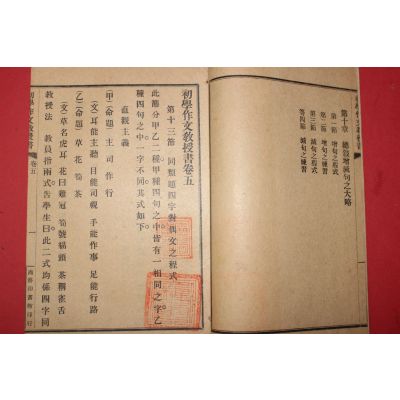 第十章 總說增減句之大略
第一節 增句之程式
第二節 增句之練習
第三節 減句之程式
第四節 減句之練習
初學作文教授書卷五
第十三節 同類題四字對偶文之程式
此節分甲乙二種甲種四句之中皆有一相同之字乙
種四句之中一字不同其式如下
直觀主義
(甲)(命題) 主 司 作 行
(文)耳能主聽 目能司視 手能作事 足能行路
(乙)(命題) 草 花 筍 茶
(文)草名虎耳 花曰雞冠 筍號貓頭 茶稱雀舌
教授法 教員指兩式告學生曰此二式均係四字同
初學作文教授書 卷五 一